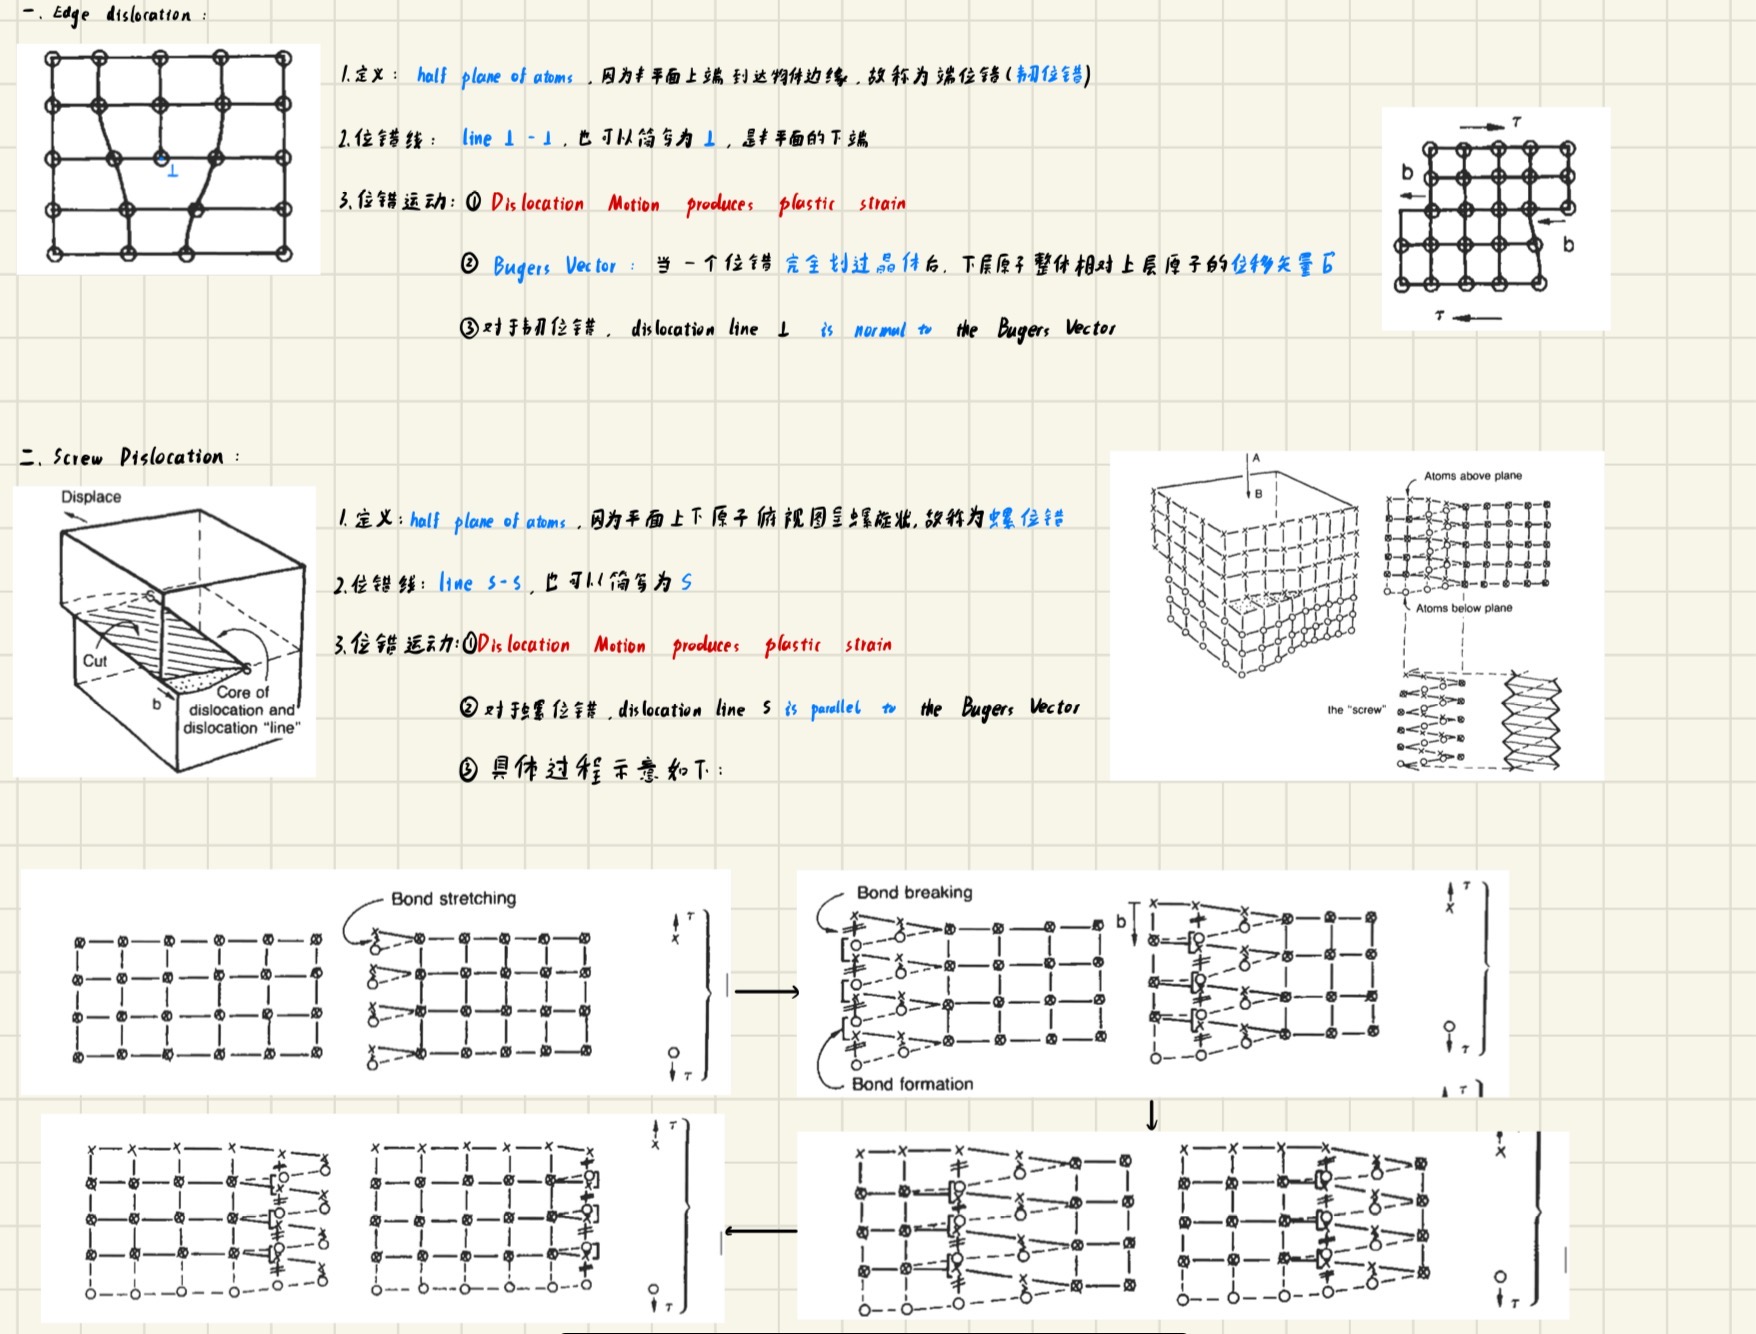 一. Edge dislocation:
⊥
1.定义: half plane of atoms, 因为半平面上端到达物体边缘, 故称为端位错(韧位错)
2.位错线: line ⊥-⊥, 也可以简写为⊥, 是半平面的下端
3.位错运动: ① Dislocation Motion produces plastic strain
② Bugers Vector: 当一个位错完全划过晶体后, 下层原子整体相对上层原子的位移矢量b
③对于韧位错, dislocation line ⊥ is normal to the Bugers Vector
τ
b
b
τ
二. Screw Dislocation:
Displace
S
Cut
S
b
Core of
dislocation and
dislocation "line"
1.定义: half plane of atoms, 因为平面上下原子俯视图呈螺旋状, 故称为螺位错
2.位错线: line S-S, 也可以简写为S
3.位错运动:①Dislocation Motion produces plastic strain
②对于螺位错, dislocation line S is parallel to the Bugers Vector
③具体过程示意如下:
A
B
Atoms above plane
Atoms below plane
the "screw"
Bond stretching
τ
τ
Bond breaking
b
Bond formation
τ
τ
τ
τ
τ
τ